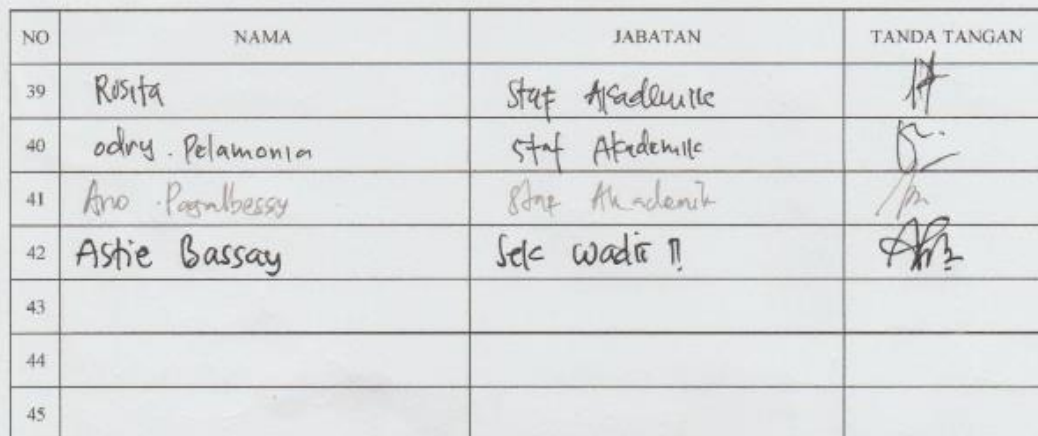 NO NAMA JABATAN TANDA TANGAN
39 Rosita Staf Akademik
40 odry . Pelamonia Staf Akademik
41 Ano . Pagalbessy Staf Akademik
42 Astie Bassay Sek wadir II
43
44
45